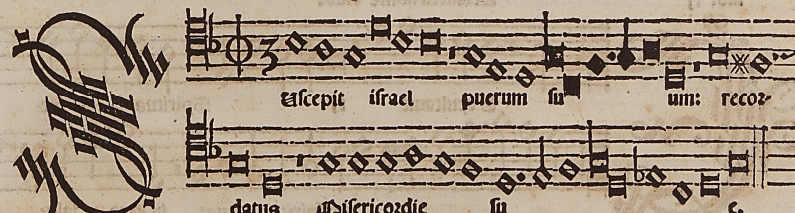 Suscepit israel puerum su um: recor-
datus Misericordie su e.